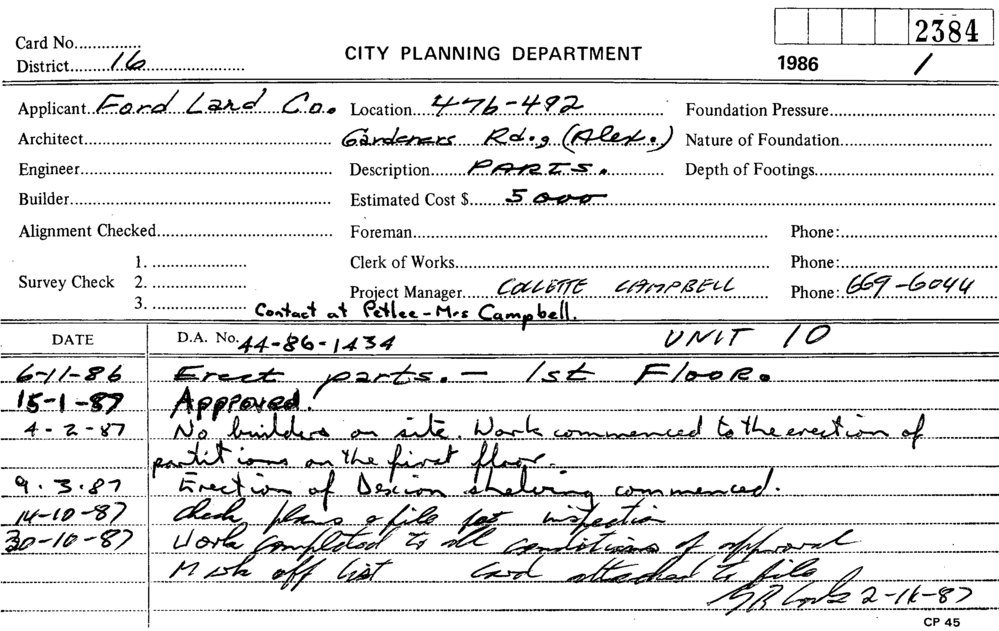 2384
Card No...............
District......16......
CITY PLANNING DEPARTMENT
1986 1
Applicant Ford Land Co. Location 476-492 Foundation Pressure
Architect Gardeners Rd., (Alex.) Nature of Foundation
Engineer Description PARTS. Depth of Footings
Builder Estimated Cost $ 5000
Alignment Checked Foreman Phone:
Survey Check 1. Clerk of Works Phone:
2. Project Manager COLLETTE CAMPBELL Phone: 669-6044
3. Contact at Petlee - Mrs Campbell.
DATE D.A. No. 44-86-1434 UNIT 10
6-11-86 Erect parts. - 1st Floor.
15-1-87 Approved.
4-2-87 No builders on site. Work commenced to the erection of
partitions on the first floor.
9.3.87 Erection of Dexion shelving commenced.
14-10-87 Check plans & file for inspection
30-10-87 Work completed to all conditions of approval
Mark off list Card attached to file
2-11-87
CP 45